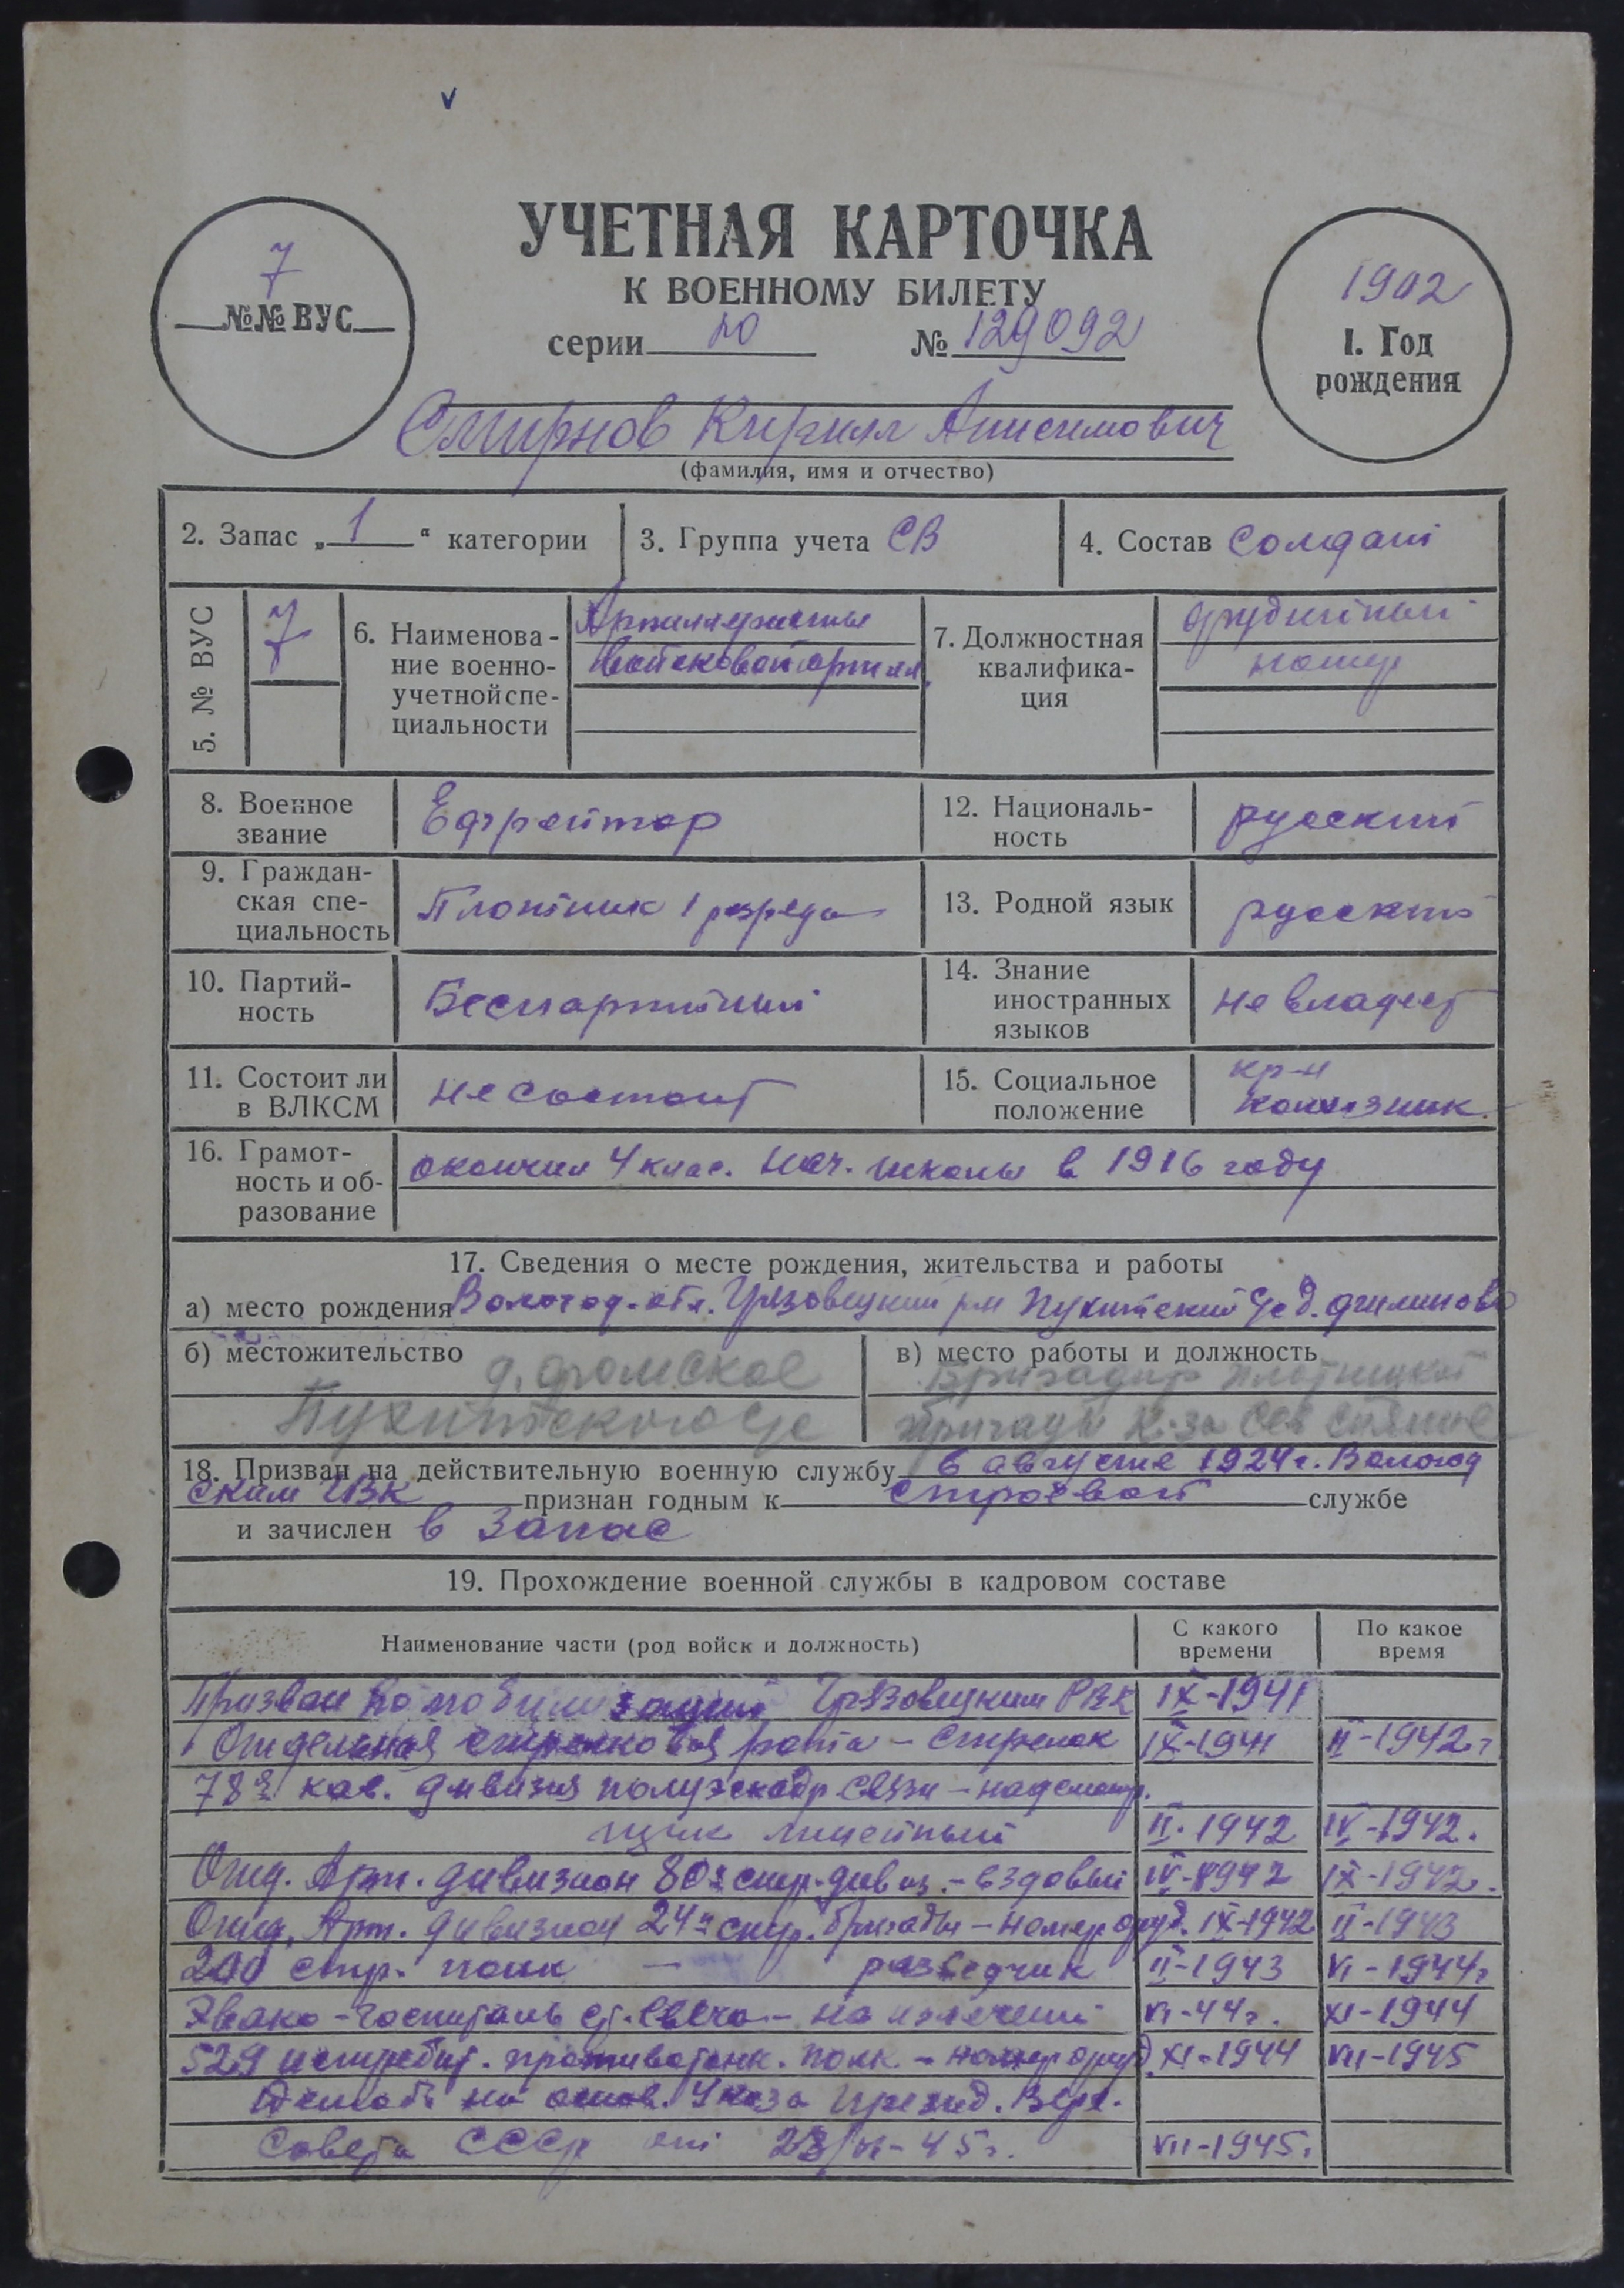 v
УЧЕТНАЯ КАРТОЧКА
К ВОЕННОМУ БИЛЕТУ
серии № 129092
7
№№ ВУС
1902
1. Год
рождения
Смирнов Кирилл Анисимович
(фамилия, имя и отчество)
2. Запас „1“ категории
3. Группа учета СВ
4. Состав Солдат
5. № ВУС
7
6. Наименова-
ние военно-
учетной спе-
циальности
Артиллеристы
войсковой артилл.
7. Должностная
квалифика-
ция
орудийный
номер
8. Военное
звание
Ефрейтор
12. Националь-
ность
русский
9. Граждан-
ская спе-
циальность
Плотник 1 разряда
13. Родной язык
русский
10. Партий-
ность
Беспартийный
14. Знание
иностранных
языков
не владеет
11. Состоит ли
в ВЛКСМ
не состоит
15. Социальное
положение
кр-н
колхозник.
16. Грамот-
ность и об-
разование
окончил 4 клас. нач. школы в 1916 году
17. Сведения о месте рождения, жительства и работы
а) место рождения Вологод. обл. Грязовецкий р-н Пухитский с/с д.
б) местожительство
д. Фомское
Пухитского с/с
в) место работы и должность
Бригадир плотницкой
бригады к-за
18. Призван на действительную военную службу 6 августа 1924 г. Вологод
ским УВК признан годным к строевой службе
и зачислен в запас
19. Прохождение военной службы в кадровом составе
Наименование части (род войск и должность)
С какого
времени
По какое
время
Призван по мобилизации Грязовецким РВК IX-1941
Отдельная стрелковая рота - стрелок IX-1941 II-1942 г
78я кав. дивизия полуэскадр связи - надсмотр.
щик линейный II-1942 IV-1942.
Отд. Арт. дивизион 80й стр. дивиз. - ездовый IV-1942 IX-1942.
Отд. Арт. дивизион 24й стр. бригады - номер оруд. IX-1942 II-1943
200 стр. полк - разведчик II-1943 VI-1944г
Эвако-госпиталь ст. Свеча - на излечении VI-44г. XI-1944
529 истребит. противотанк. полк - номер оруд. XI-1944 VII-1945
Демоб. на основ. Указа Презид. Верх.
Совета СССР от 23/VI-45г. VII-1945.